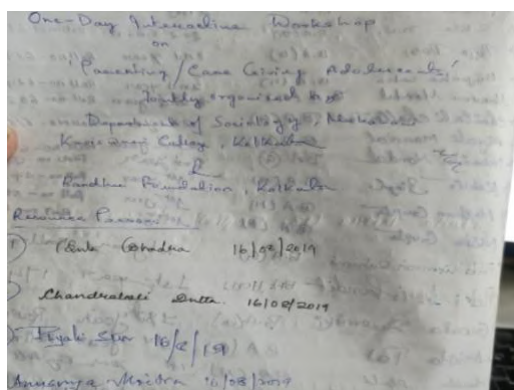 One-Day Interactive Workshop
on
'Parenting / Care Giving Adolescents'
Jointly organised by
Department of Sociology,
College, Kolkata
&
Bandhu Foundation, Kolkata
Resource Person
1) Bhadra 16/08/2019
Chandrabali Dutta. 16/08/2019
16/8/19
Moitra 16/08/2019